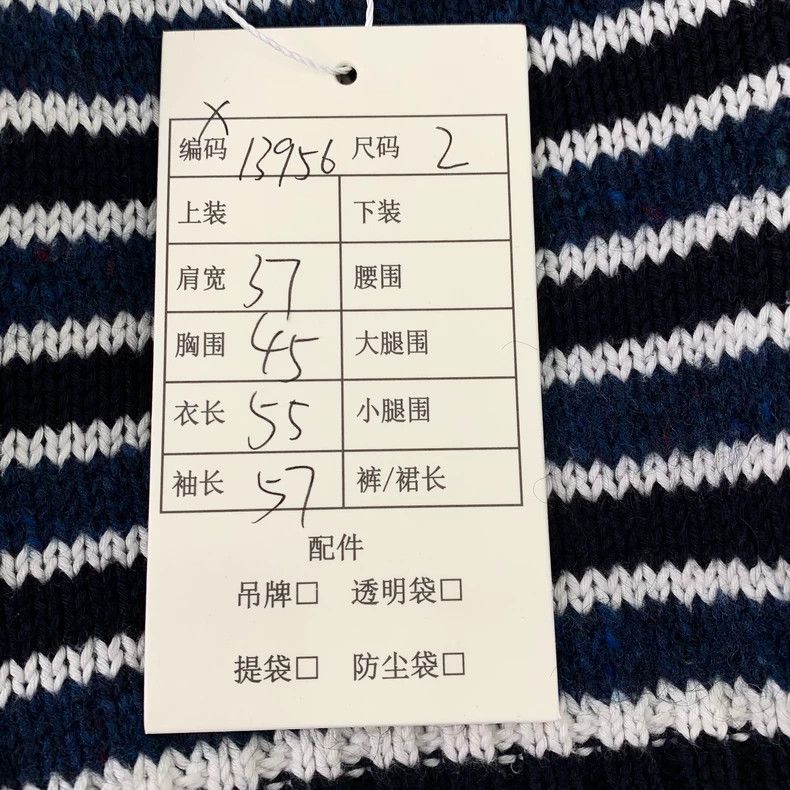 X
编码 13956 尺码 2
上装 下装
肩宽 37 腰围
胸围 45 大腿围
衣长 55 小腿围
袖长 57 裤/裙长
配件
吊牌□ 透明袋□
提袋□ 防尘袋□